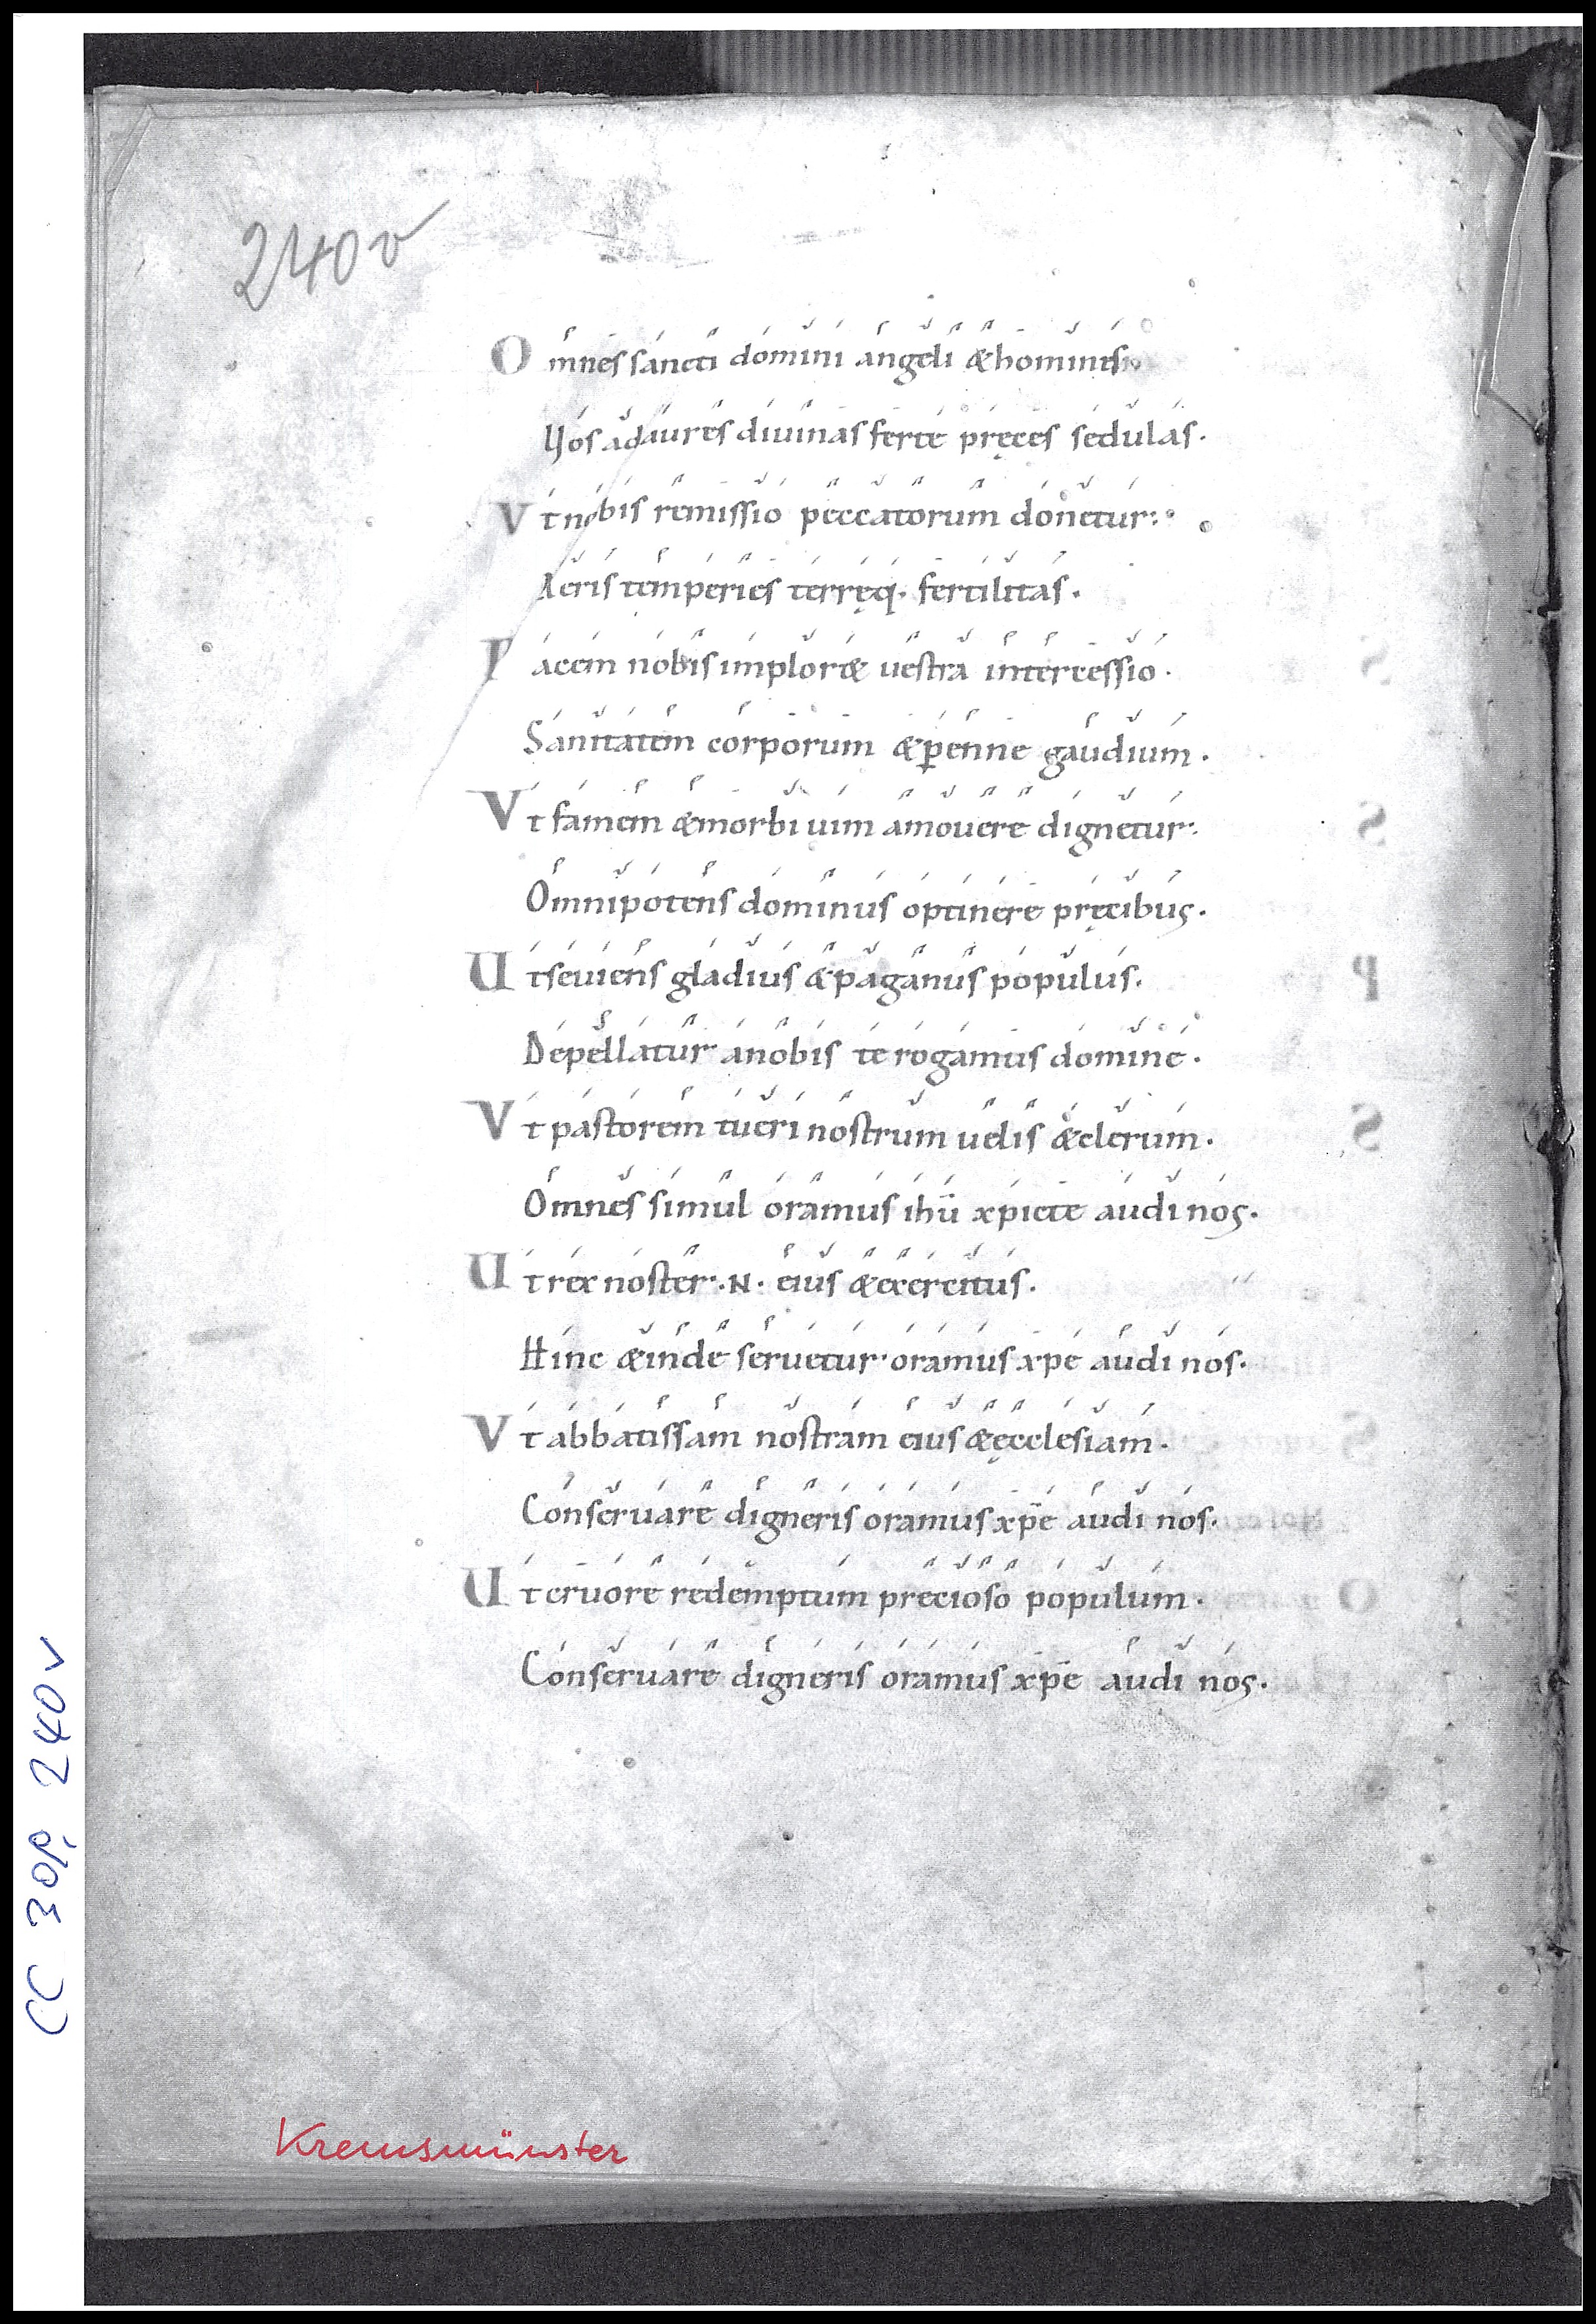 240v
Omnes sancti domini angeli & homines
Hos ad aures diuinas ferte pręces sedulas.
Vt nobis remissio peccatorum donetur:
Aeris temperies terręq. fertilitas.
Pacem nobis implor& uestra intercessio.
Sanitatem corporum & p̱enne gaudium.
Vt famem & morbi uim amouere dignetur:
Omnipotens dominus optinere pręcibus.
Ut seuiens gladius & paganus populus.
Depellatur a nobis te rogamus domine.
Vt pastorem tueri nostrum uelis & clerum.
Omnes simul oramus ihū xpicte audi nos.
Ut rex noster .N. eius & exercitus.
Hinc & inde seruetur oramus xpe audi nos.
Vt abbatissam nostram eius & ęcclesiam.
Conseruare digneris oramus xp̄e audi nos.
Ut cruore redemptum precioso populum.
Conseruare digneris oramus xp̄e audi nos.
Kremsmünster
CC 309, 240v